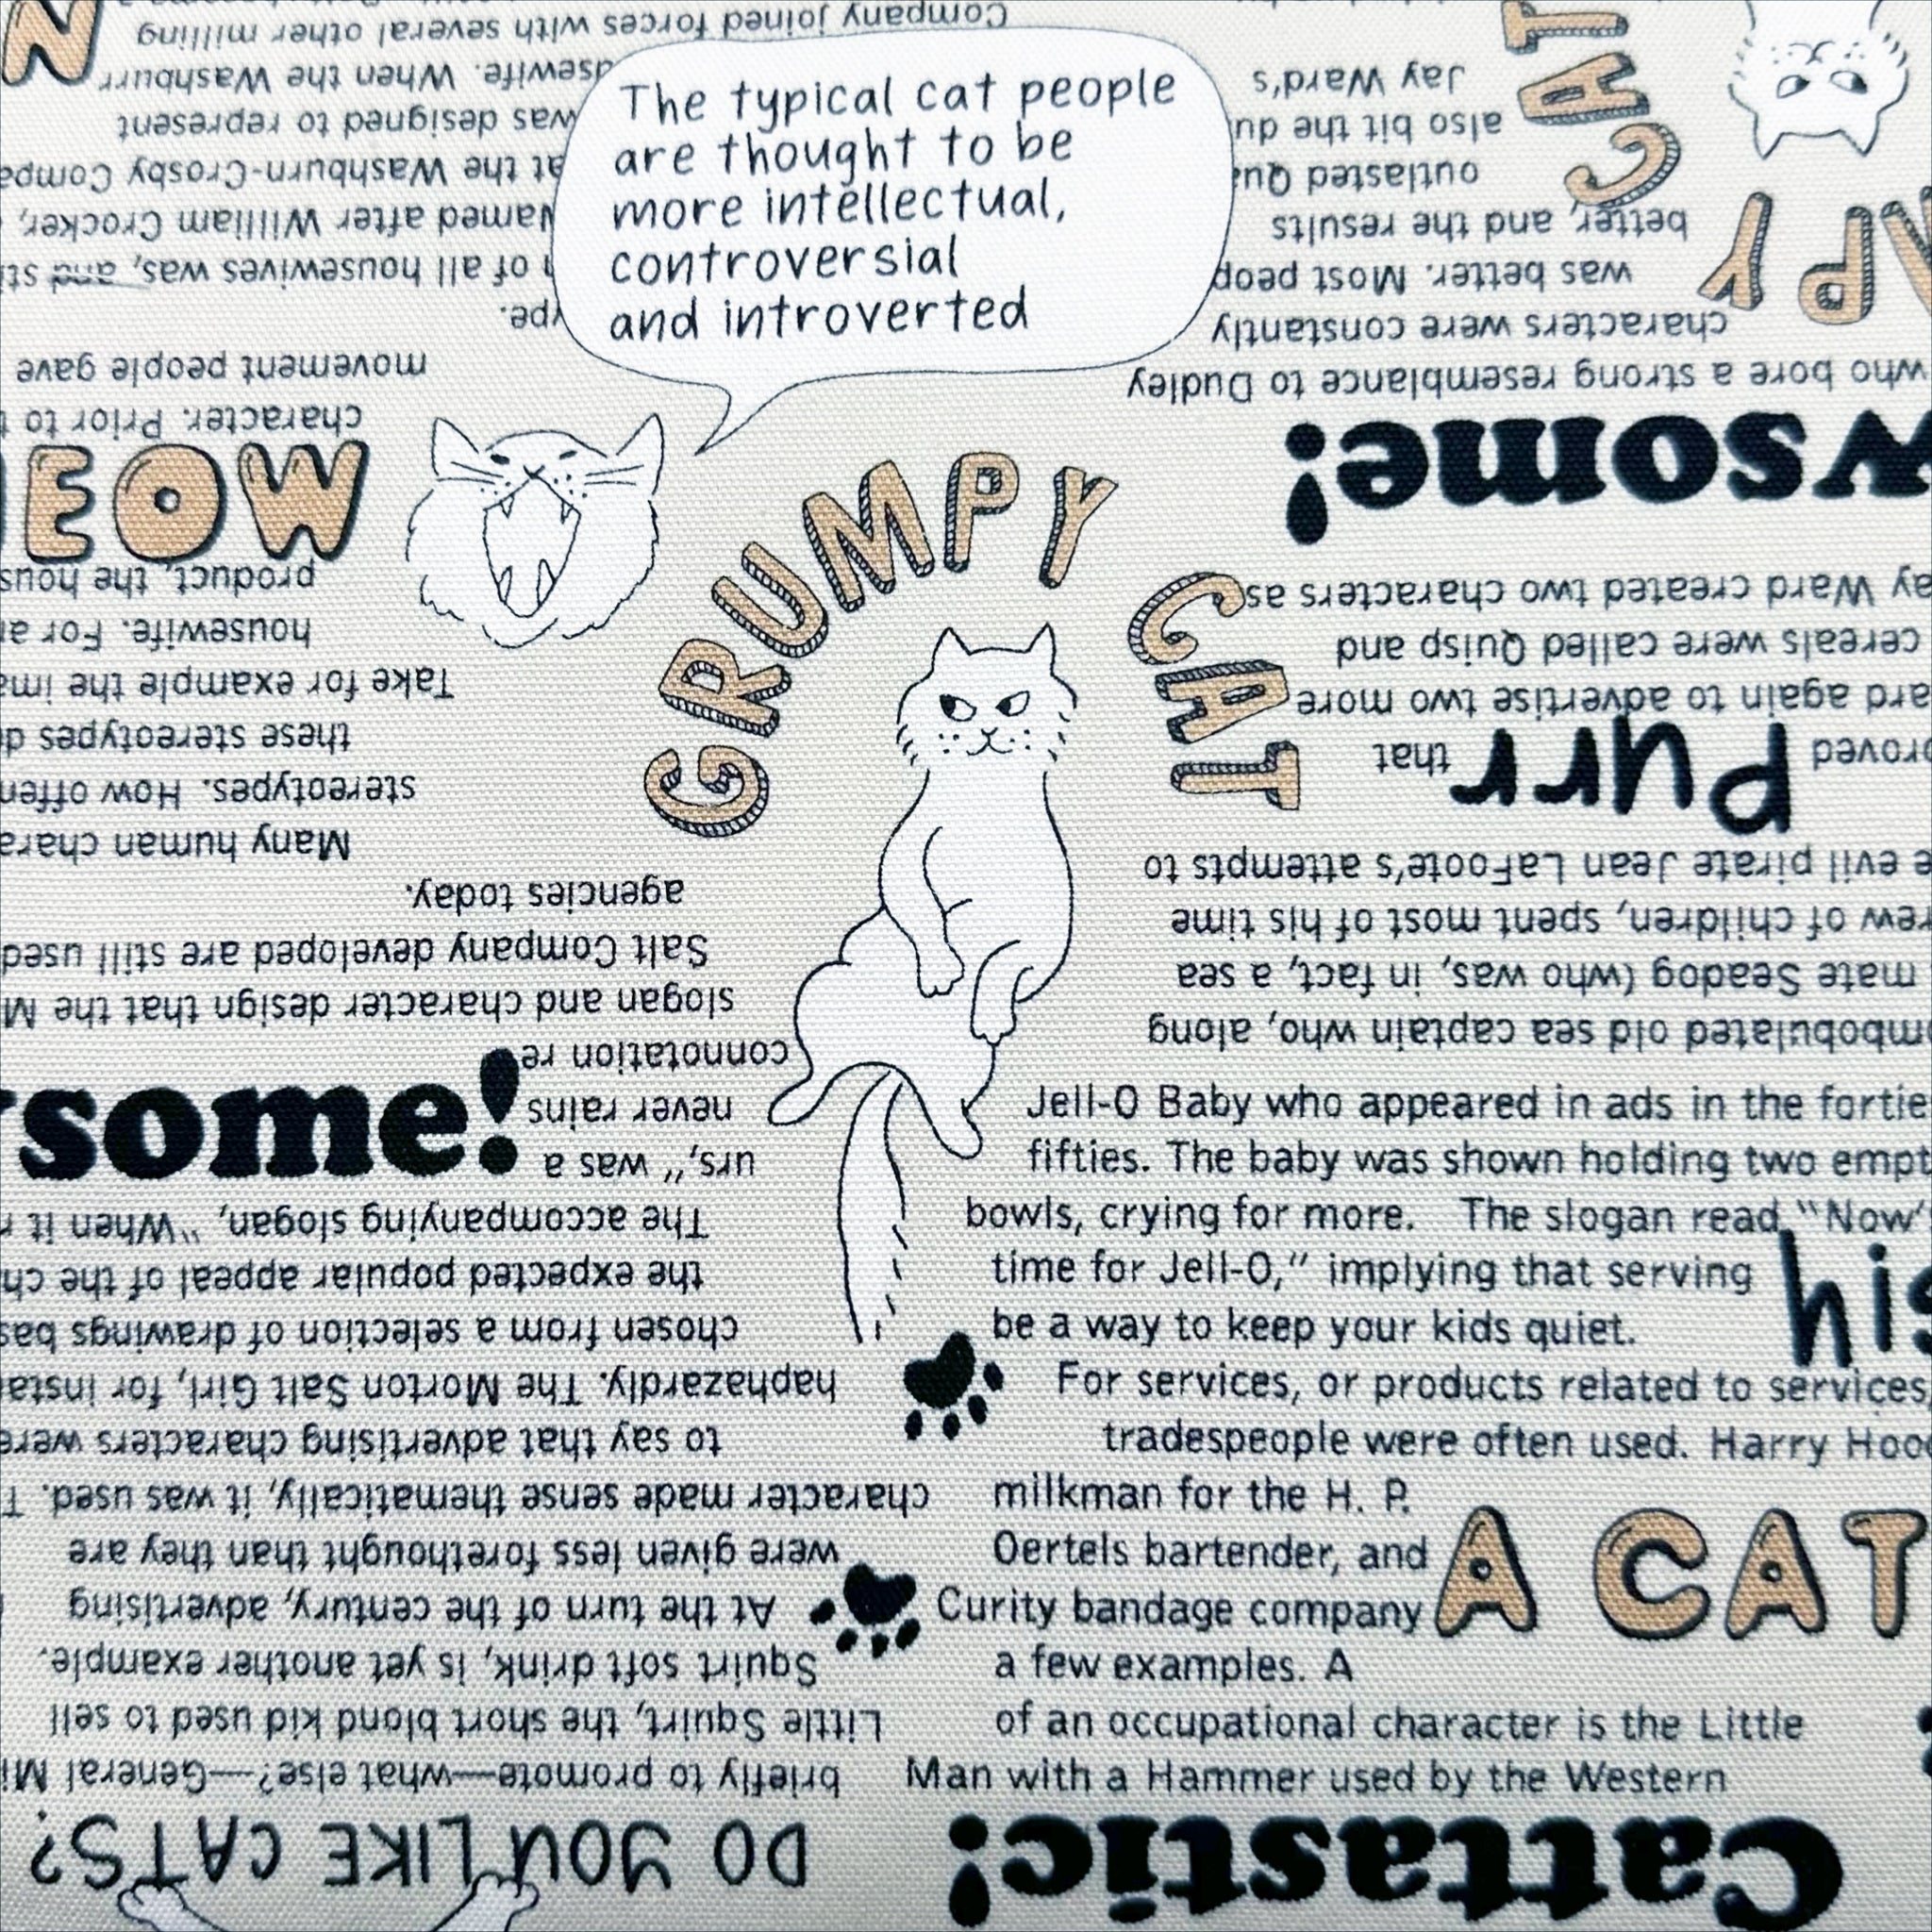 The typical cat people
are thought to be
more intellectual,
controversial
and introverted
GRUMPY CAT
Jell-O Baby who appeared in ads in the
fifties. The baby was shown holding two
bowls, crying for more. The slogan read, "Now
time for Jell-O," implying that serving
be a way to keep your kids quiet.
For services, or products related to services
tradespeople were often used. Harry
milkman for the H. P.
Oertels bartender, and
Curity bandage company
A CAT
a few examples. A
of an occupational character is the Little
Man with a Hammer used by the Western
some!
Cattastic!
DO YOU LIKE CATS?
briefly to promote—what else?—General
Little Squirt, the short blond kid used to sell
Squirt soft drink, is yet another example.
At the turn of the century, advertising
were given less forethought than they are
character made sense thematically, it was used.
to say that advertising characters were
haphazardly. The Morton Salt Girl, for
chosen from a selection of drawings
the expected popular appeal of the
The accompanying slogan, "When it
urs," was a
never rains
connotation re
slogan and character design that the
Salt Company developed are still used
agencies today.
Many human
stereotypes. How
these stereotypes
Take for example the
housewife. For
product, the
MEOW
character. Prior to
movement people gave
of all housewives was, and
Named after William Crocker,
at the Washburn-Crosby
was designed to represent
When the Washburn
Company joined forces with several other milling
mbobulated old sea captain who, along
mate Seadog (who was, in fact, a sea
of children, spent most of his time
evil pirate Jean LaFoote's attempts to
Purr
that
again to advertise two more
cereals were called Quisp and
Ward created two characters as
wsome!
who bore a strong resemblance to Dudley
characters were constantly
was better. Most
better, and the results
outlasted
also bit the
Jay Ward's
CAT